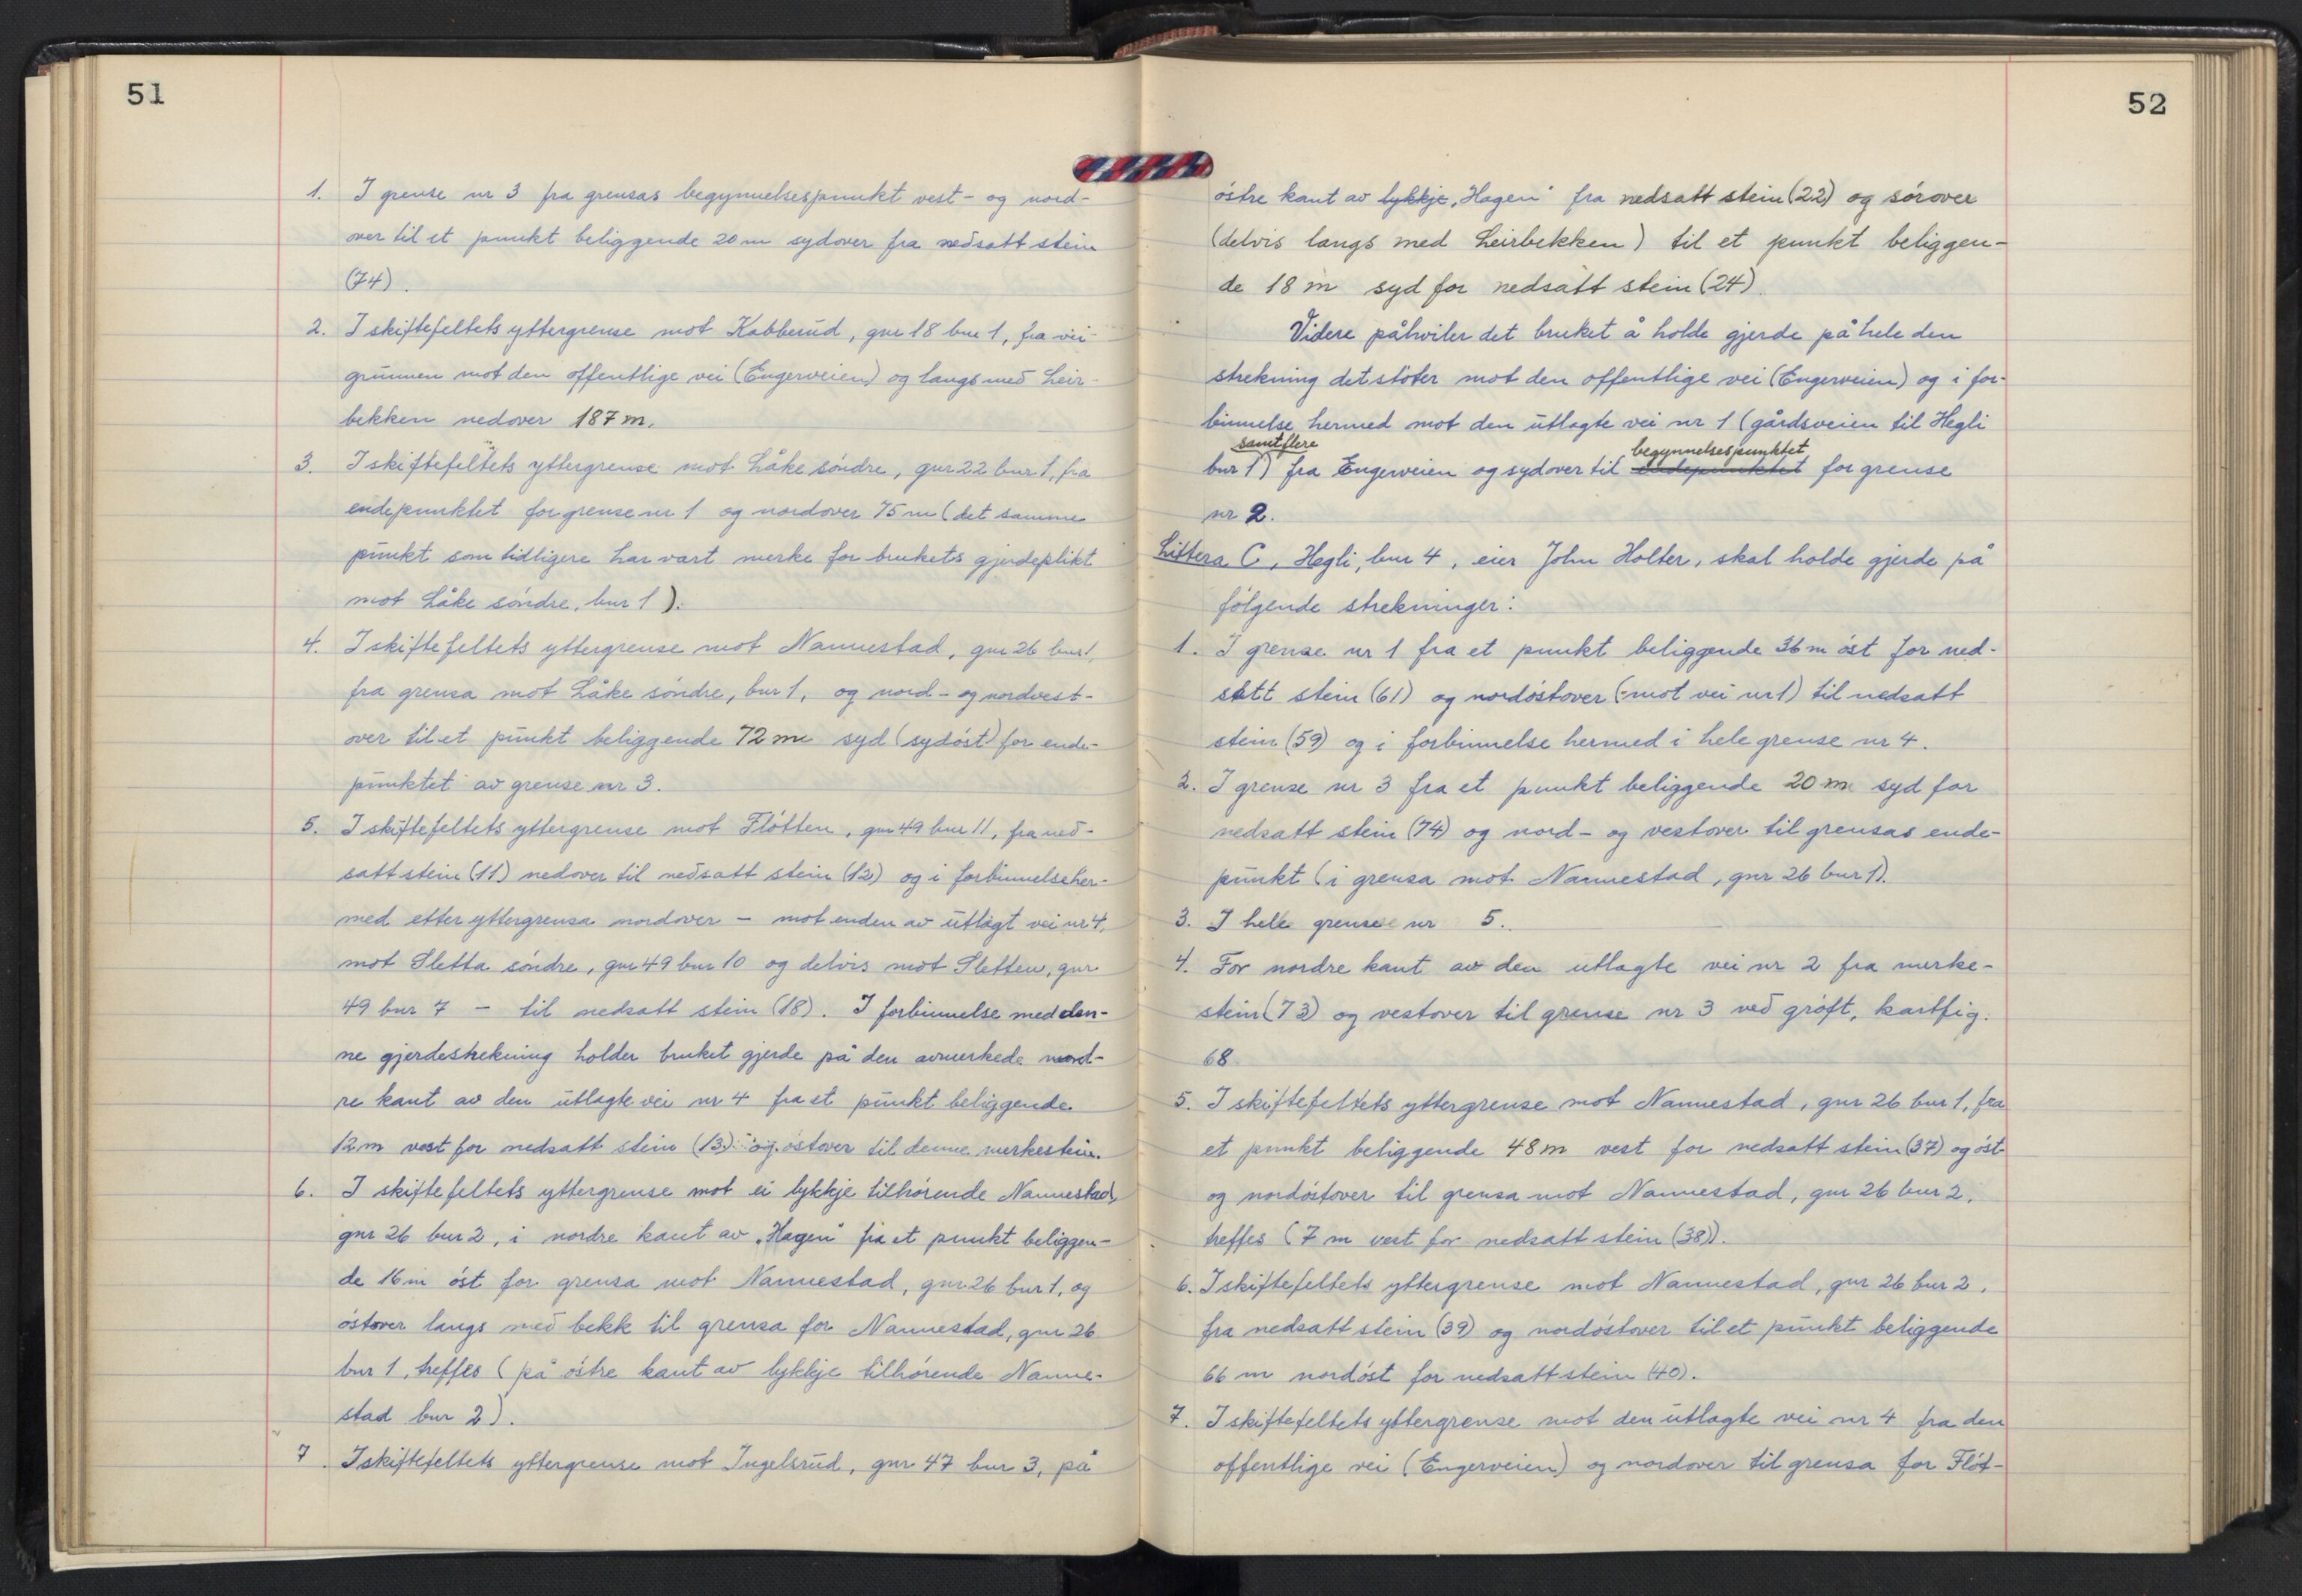 51
1. I grense nr 3 fra grensas begynnelsespunkt vest- og nord-
over til et punkt beliggende 20 m sydover fra nedsatt stein
(74).
2. I skiftefeltets yttergrense mot Kabberud, gnr 18 bnr 1, fra vei-
grunnen mot den offentlige vei (Engerveien) og langs med Leir-
bekken nedover 187 m.
3. I skiftefeltets yttergrense mot Låke söndre, gnr 22 bnr 1, fra
endepunktet for grense nr 1 og nordover 75 m (det samme
punkt som tidligere har vært merke for brukets gjerdeplikt
mot Låke söndre, bnr 1).
4. I skiftefeltets yttergrense mot Nannestad, gnr 26 bnr 1,
fra grensa mot Låke söndre, bnr 1, og nord- og nordvest-
over til et punkt beliggende 72 m syd (sydöst) for ende-
punktet av grense nr 3.
5. I skiftefeltets yttergrense mot Flötten, gnr 49 bnr 11, fra ned-
satt stein (11) nedover til nedsatt stein (12) og i forbinnelse her-
med etter yttergrensa nordover - mot enden av utlagt vei nr 4,
mot Sletta söndre, gnr 49 bnr 10 og delvis mot Sletten, gnr
49 bnr 7 - til nedsatt stein (18). I forbinnelse med den-
ne gjerdestrekning holder bruket gjerde på den avmerkede nord-
re kant av den utlagte vei nr 4 fra et punkt beliggende
12 m vest for nedsatt stein (13) og östover til denne merkestein.
6. I skiftefeltets yttergrense mot ei lykkje tilhörende Nannestad,
gnr 26 bnr 2, i nordre kant av „Hagen" fra et punkt beliggen-
de 16 m öst for grensa mot Nannestad, gnr 26 bnr 1, og
östover langs med bekk til grensa for Nannestad, gnr 26
bnr 1, treffes (på östre kant av lykkje tilhörende Nanne-
stad bnr 2).
7. I skiftefeltets yttergrense mot Ingelsrud, gnr 47 bnr 3, på
52
östre kant av lykkje „Hagen" fra nedsatt stein (22) og sörover
(delvis langs med Leirbekken) til et punkt beliggen-
de 18 m syd for nedsatt stein (24).
Videre påhviler det bruket å holde gjerde på hele den
strekning det stöter mot den offentlige vei (Engerveien) og i for-
binnelse hermed mot den utlagte vei nr 1 (gårdsveien til Hegli
samt flere begynnelsespunktet
bnr 1) fra Engerveien og sydover til endepunktet for grense
nr 2.
Littera C, Hegli, bnr 4, eier John Holter, skal holde gjerde på
fölgende strekninger:
1. I grense nr 1 fra et punkt beliggende 36 m öst for ned-
satt stein (61) og nordöstover (mot vei nr 1) til nedsatt
stein (59) og i forbinnelse hermed i hele grense nr 4.
2. I grense nr 3 fra et punkt beliggende 20 m syd for
nedsatt stein (74) og nord- og vestover til grensas ende-
punkt (i grensa mot Nannestad, gnr 26 bnr 1).
3. I hele grense nr 5.
4. For nordre kant av den utlagte vei nr 2 fra merke-
stein (73) og vestover til grense nr 3 ved gröft, kartfig.
68
5. I skiftefeltets yttergrense mot Nannestad, gnr 26 bnr 1, fra
et punkt beliggende 48 m vest for nedsatt stein (37) og öst-
og nordöstover til grensa mot Nannestad, gnr 26 bnr 2,
treffes (7 m vest for nedsatt stein (38)).
6. I skiftefeltets yttergrense mot Nannestad, gnr 26 bnr 2,
fra nedsatt stein (39) og nordöstover til et punkt beliggende
66 m nordöst for nedsatt stein (40).
7. I skiftefeltets yttergrense mot den utlagte vei nr 4 fra den
offentlige vei (Engerveien) og nordover til grensa for Flöt-